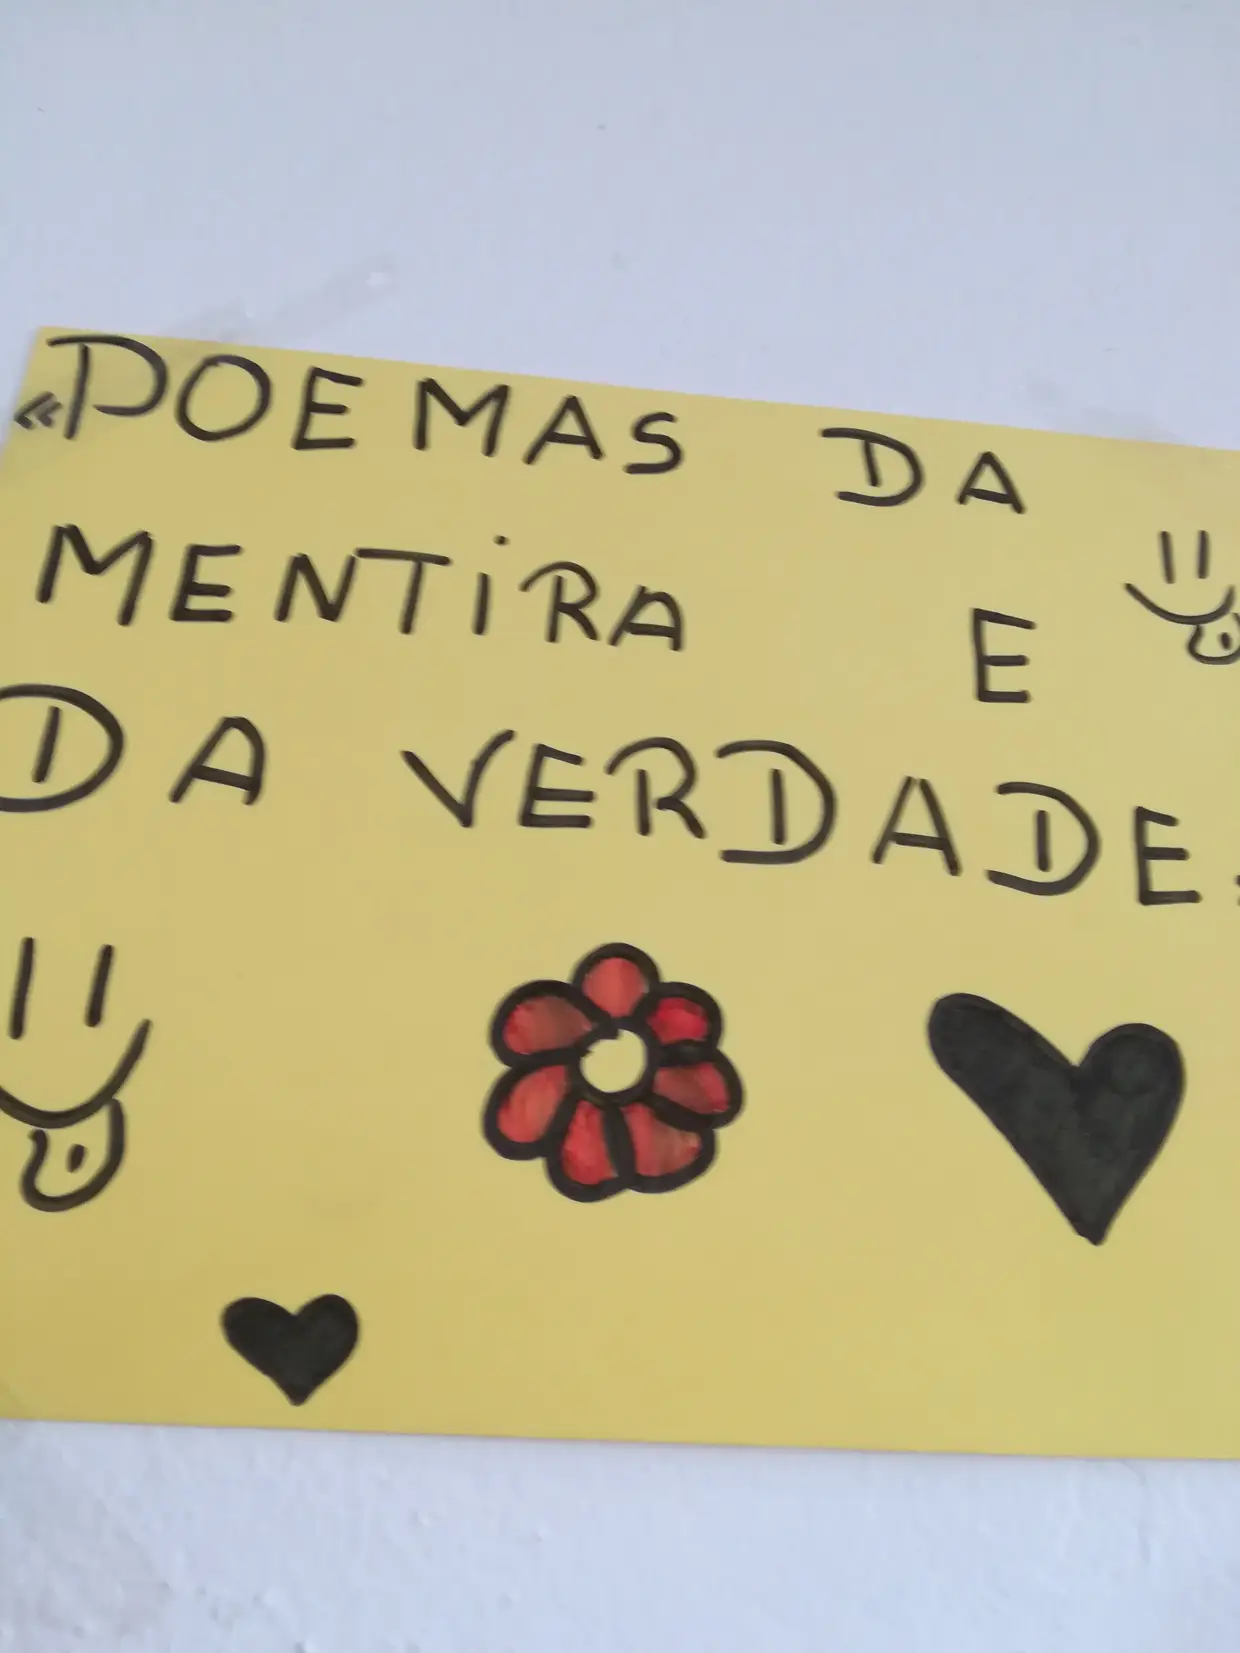 «POEMAS DA
MENTIRA E
DA VERDADE